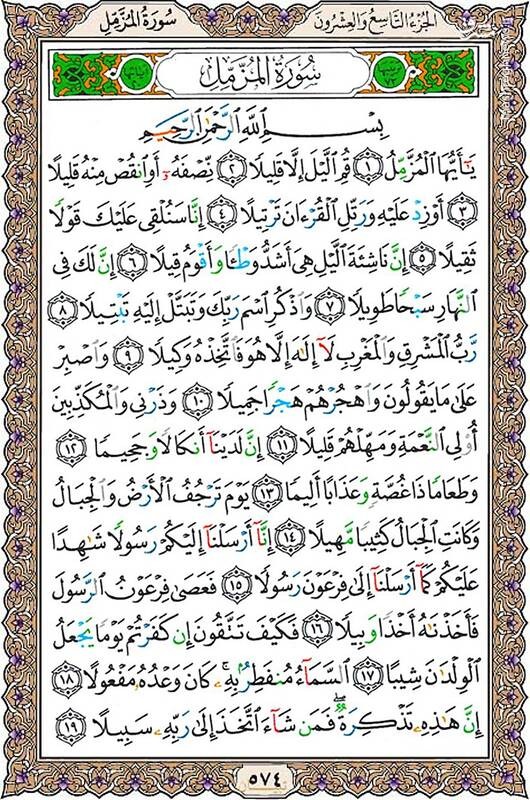 سُورَةُ المُزَّمِّل
الجُزءُ التَّاسِعُ وَالعِشْرُونَ
سُورَةُ المُزَّمِّل
بِسْمِ ٱللَّهِ ٱلرَّحْمَٰنِ ٱلرَّحِيمِ
يَٰٓأَيُّهَا ٱلْمُزَّمِّلُ ١ قُمِ ٱلَّيْلَ إِلَّا قَلِيلًا ٢ نِّصْفَهُۥٓ أَوِ ٱنقُصْ مِنْهُ قَلِيلًا
٣ أَوْ زِدْ عَلَيْهِ وَرَتِّلِ ٱلْقُرْءَانَ تَرْتِيلًا ٤ إِنَّا سَنُلْقِى عَلَيْكَ قَوْلًا
ثَقِيلًا ٥ إِنَّ نَاشِئَةَ ٱلَّيْلِ هِىَ أَشَدُّ وَطْـًٔا وَأَقْوَمُ قِيلًا ٦ إِنَّ لَكَ فِى
ٱلنَّهَارِ سَبْحًا طَوِيلًا ٧ وَٱذْكُرِ ٱسْمَ رَبِّكَ وَتَبَتَّلْ إِلَيْهِ تَبْتِيلًا ٨
رَّبُّ ٱلْمَشْرِقِ وَٱلْمَغْرِبِ لَآ إِلَٰهَ إِلَّا هُوَ فَٱتَّخِذْهُ وَكِيلًا ٩ وَٱصْبِرْ
عَلَىٰ مَا يَقُولُونَ وَٱهْجُرْهُمْ هَجْرًا جَمِيلًا ١٠ وَذَرْنِى وَٱلْمُكَذِّبِينَ
أُو۟لِى ٱلنَّعْمَةِ وَمَهِّلْهُمْ قَلِيلًا ١١ إِنَّ لَدَيْنَآ أَنكَالًا وَجَحِيمًا ١٢
وَطَعَامًا ذَا غُصَّةٍ وَعَذَابًا أَلِيمًا ١٣ يَوْمَ تَرْجُفُ ٱلْأَرْضُ وَٱلْجِبَالُ
وَكَانَتِ ٱلْجِبَالُ كَثِيبًا مَّهِيلًا ١٤ إِنَّآ أَرْسَلْنَآ إِلَيْكُمْ رَسُولًا شَٰهِدًا
عَلَيْكُمْ كَمَآ أَرْسَلْنَآ إِلَىٰ فِرْعَوْنَ رَسُولًا ١٥ فَعَصَىٰ فِرْعَوْنُ ٱلرَّسُولَ
فَأَخَذْنَٰهُ أَخْذًا وَبِيلًا ١٦ فَكَيْفَ تَتَّقُونَ إِن كَفَرْتُمْ يَوْمًا يَجْعَلُ
ٱلْوِلْدَٰنَ شِيبًا ١٧ ٱلسَّمَآءُ مُنفَطِرٌۢ بِهِۦ ۚ كَانَ وَعْدُهُۥ مَفْعُولًا ١٨
إِنَّ هَٰذِهِۦ تَذْكِرَةٌ ۖ فَمَن شَآءَ ٱتَّخَذَ إِلَىٰ رَبِّهِۦ سَبِيلًا ١٩
٥٧٤